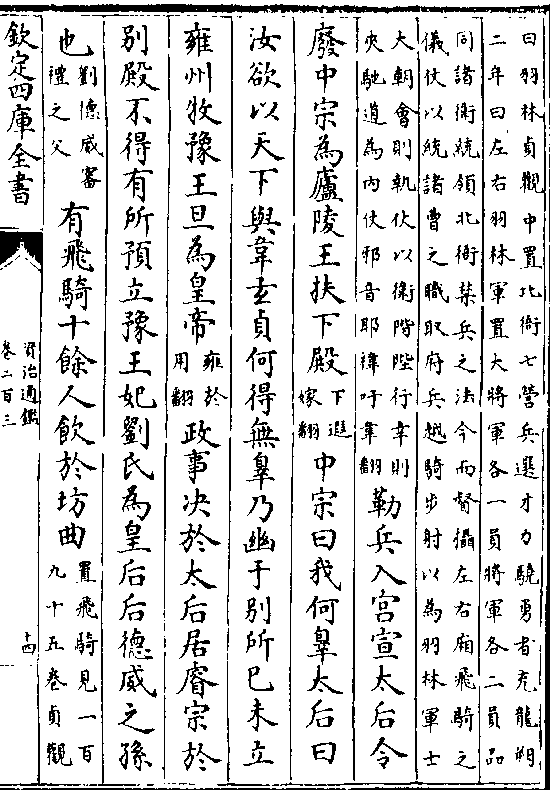 曰羽林貞觀中置北衙七營兵選才力驍勇者充龍朔
二年曰左右羽林軍置大將軍各一員將軍各二員品
同諸衛統領北衙禁兵之法令而督攝左右廂飛騎之
儀仗以統諸曹之職取府兵越騎步射以為羽林軍士
大朝會則執仗以衛階陛行幸則
夾馳道為内仗邪音耶禕吁韋翻
勒兵入宮宣太后令
廢中宗為廬陵王扶下殿
下遐
嫁翻
中宗曰我何辠太后曰
汝欲以天下與韋玄貞何得無辠乃幽于别所己未立
雍州牧豫王旦為皇帝
雍於
用翻
政事决於太后居睿宗於
别殿不得有所預立豫王妃劉氏為皇后后德威之孫
也
劉德威審
禮之父
有飛騎十餘人飲於坊曲
置飛騎見一百
九十五卷貞觀
欽定四庫全書
資治通鑑
卷二百三
十四